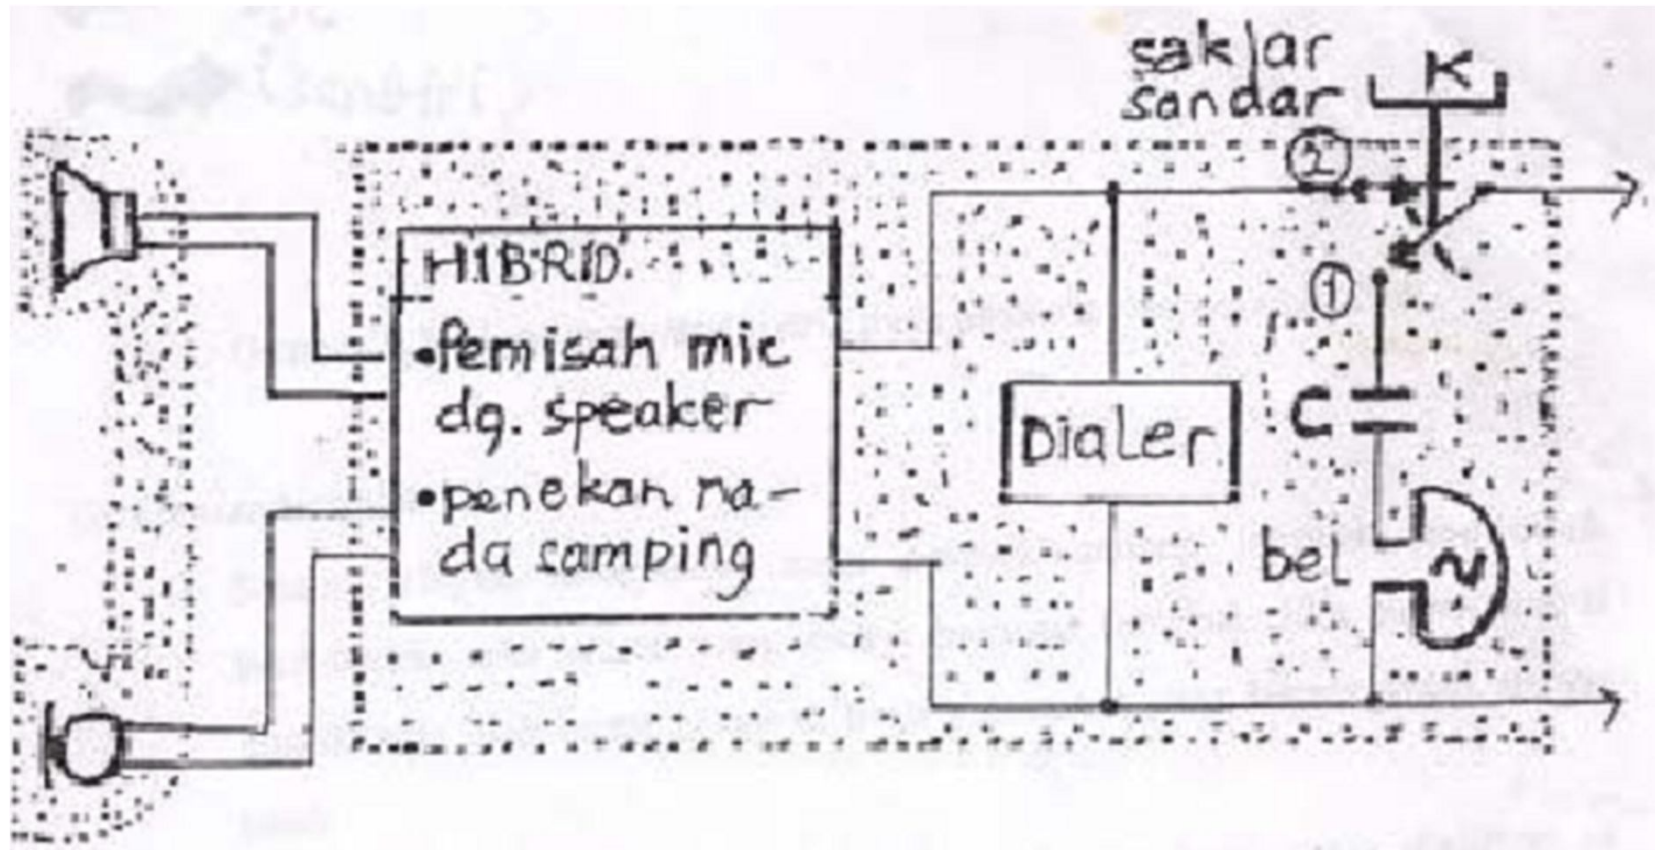 saklar
sandar
K
②
HIBRID
①
•Pemisah mic
dg. speaker
•penekan na-
da samping
Dialer
C
bel
~